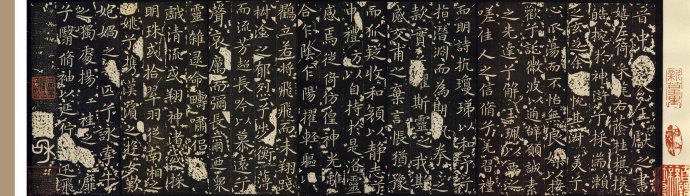 晉中
嬉左倚采旄右蔭桂旗攘皓
腕於神滸兮採湍瀨
之玄芝余情悅其淑美兮
心振蕩而不怡無良媒以接
歡兮託微波以通辭願誠素
之先達兮解玉珮而要之嗟
佳人之信修兮羌習禮
而明詩抗瓊珶以和予兮
指潛淵而爲期執拳拳之
款實兮懼斯靈之我欺
感交甫之棄言悵猶豫
而狐疑收和顏以靜志兮
申禮防以自持於是洛靈
感焉徙倚傍徨神光離
合乍陰乍陽擢輕軀以
鶴立若將飛而未翔踐
椒塗之郁烈兮步衡薄
而流芳超長吟以慕遠兮
聲哀厲而彌長爾乃衆
靈雜遝命疇嘯侶或
戲清流或翔神渚或採
明珠或拾翠羽從南湘之二
妃攜漢濱之遊女歎匏
媧之無匹兮詠牽牛
之獨處揚輕袿之猗靡
兮翳脩袖以延佇體迅飛